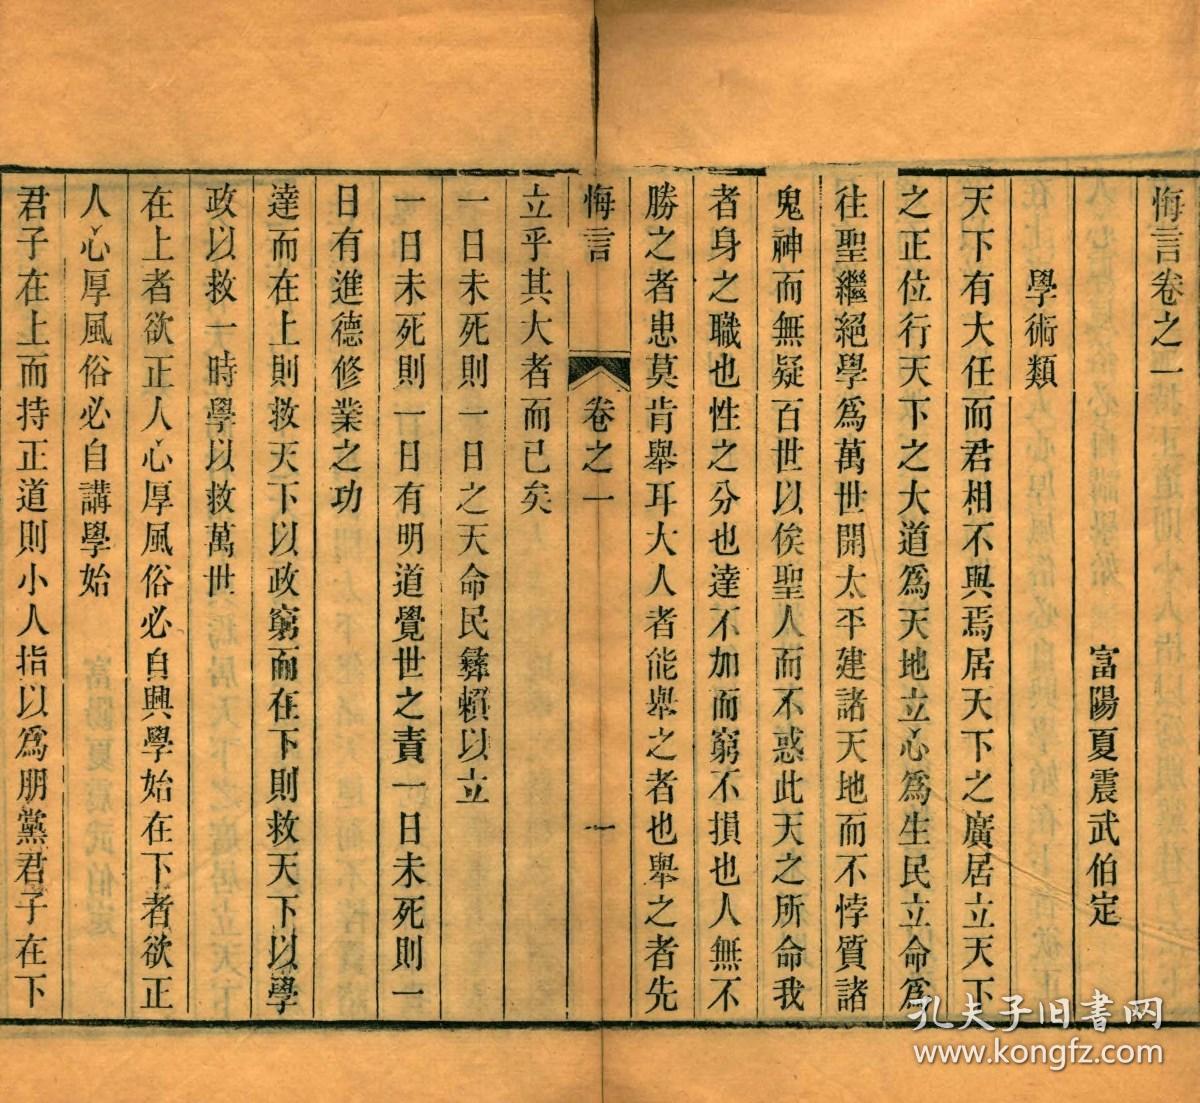 悔言卷之一
富陽夏震武伯定
學術類
天下有大任而君相不與焉居天下之廣居立天下
之正位行天下之大道爲天地立心爲生民立命爲
往聖繼絕學爲萬世開太平建諸天地而不悖質諸
鬼神而無疑百世以俟聖人而不惑此天之所命我
者身之職也性之分也達不加而窮不損也人無不
勝之者患莫肯舉耳大人者能舉之者也舉之者先
悔言
卷之一
一
立乎其大者而已矣
一日未死則一日之天命民彝賴以立
一日未死則一日有明道覺世之責一日未死則一
日有進德修業之功
達而在上則救天下以政窮而在下則救天下以學
政以救一時學以救萬世
在上者欲正人心厚風俗必自興學始在下者欲正
人心厚風俗必自講學始
君子在上而持正道則小人指以爲朋黨君子在下
孔夫子旧书网
www.kongfz.com